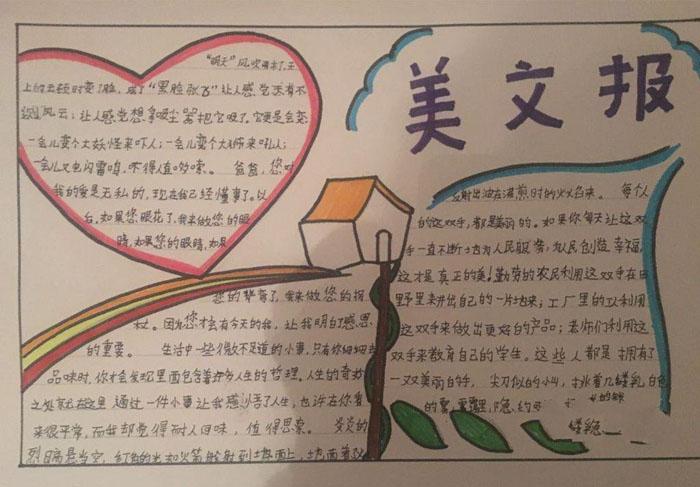 美文报
"明天"风吹雨来了,天
上的云顿时变了脸,成了"黑脸张飞"让人感觉天有不
测风云;让人感觉想拿吸尘器把它吸了。它更是会变
一会儿变个大妖怪来吓人;一会儿变个大狮来吼人;
一会儿又电闪雷鸣,不得人直哆嗦。 爸爸,您对
我的爱是无私的,现在我已经懂事了。以
后,如果您眼花了,我来做您的眼
睛,如果您的眼睛,如果
您的背弯了,我来做您的拐
杖。因为您才会有今天的我,让我明白了感恩
的重要。 生活中一些微不足道的小事,只有你细细去
品味时,你才会发现里面包含着许多人生的哲理。人生的奇妙
之处就在这里 通过一件小事让我感悟了人生,也许在你看
来很平常,而我却觉得耐人回味,值得思索。 炎炎的
烈日高悬当空,红色的光如火箭般射到地面上,地面着了火
反射出油在沸煎时的火色来。 每个人
的这双手,都是美丽的。如果你每天让这双
手一直不断地为人民服务,为人民创造幸福,
这才是真正的美!勤劳的农民利用这双手在田
野里耕出自己的一片地来;工厂里的工人利用
这双手来做出更好的产品;老师们利用这
双手来教育自己的学生。这些人都是拥有了
一双美丽的手, 尖刀似的小山,挑着几缕乳白色
的雾,雾霭,隐约
的缕
缕绕